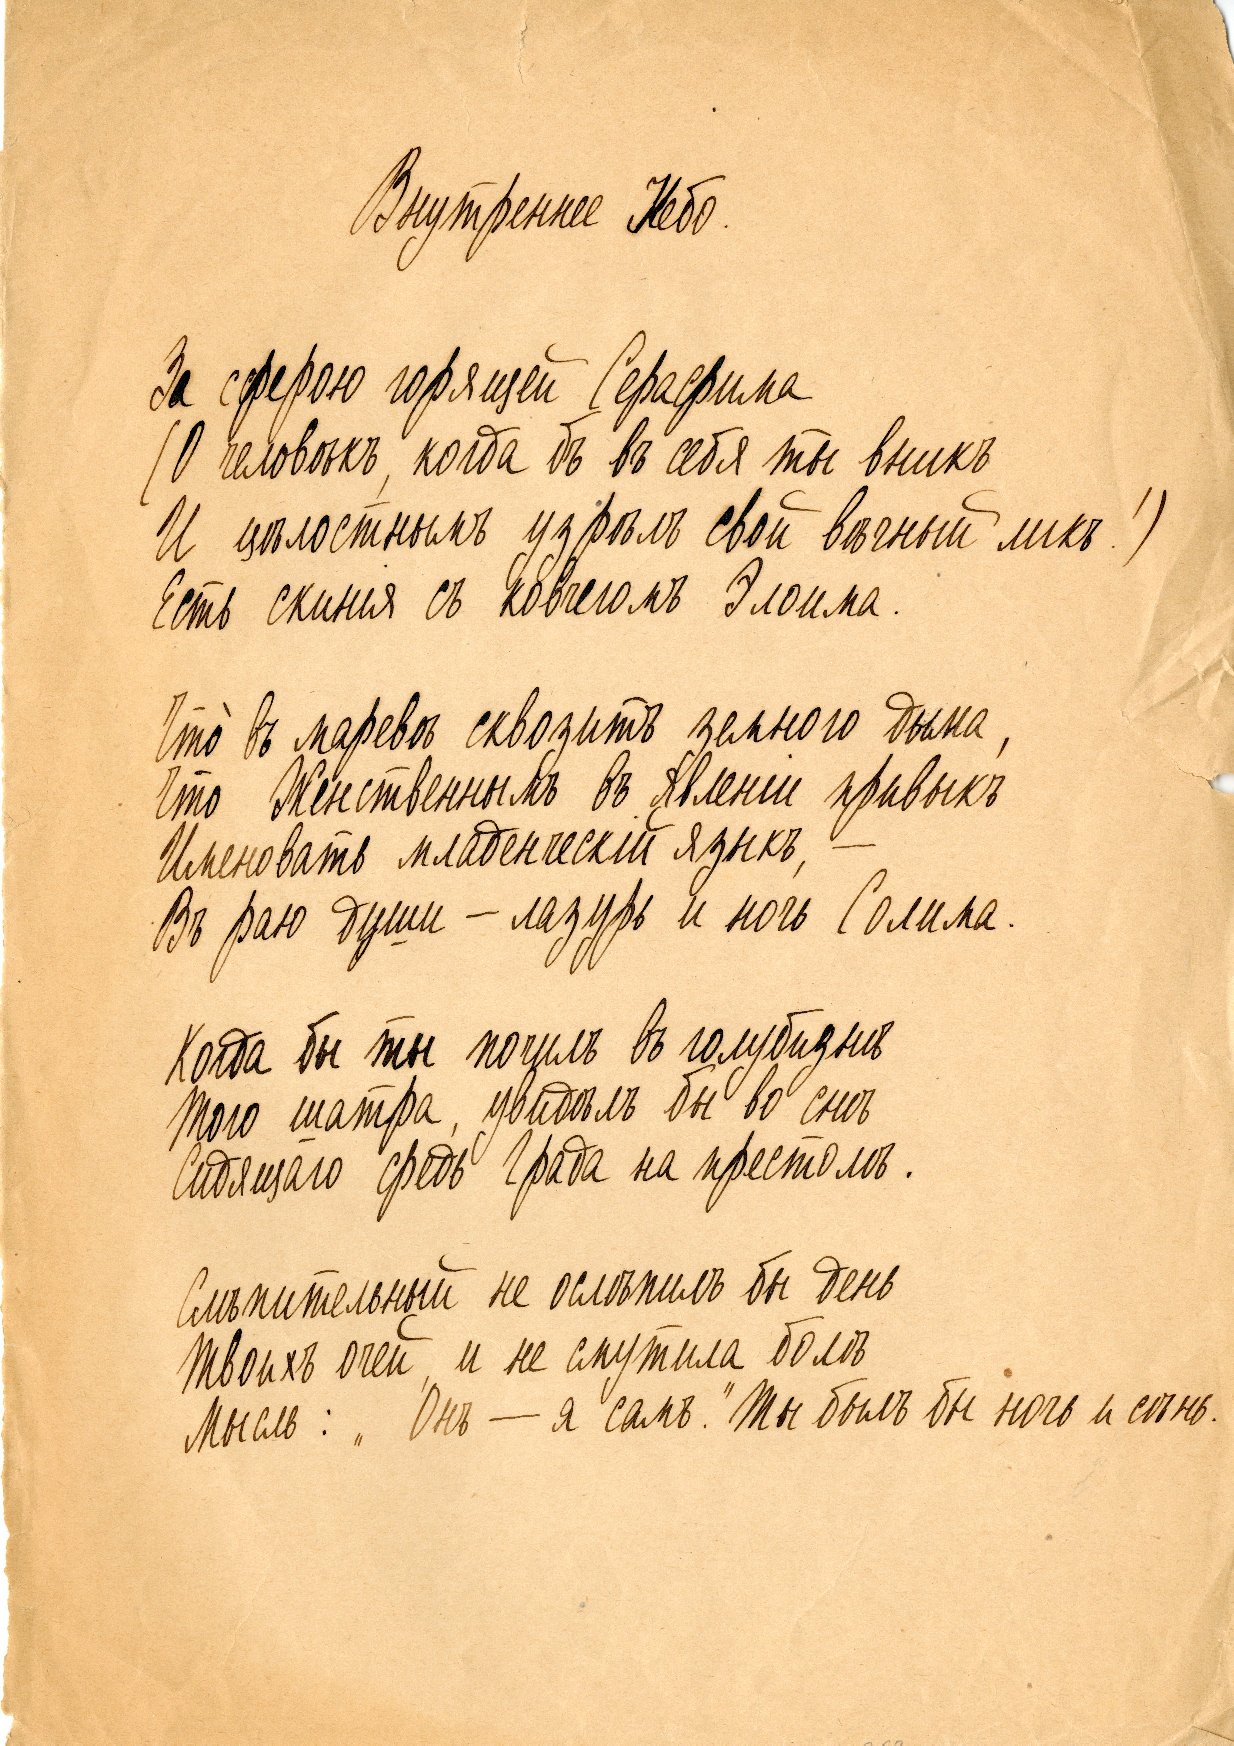 Внутреннее Небо.
За сферою горящей Серафима
(О человѣкъ, когда бъ въ себя ты вникъ
И цѣлостнымъ узрѣлъ свой вѣчный ликъ!)
Есть скинія съ ковчегомъ Элоима.
Что̀ въ маревѣ сквозитъ земного дыма,
Что Женственнымъ въ явленіи привыкъ
Именовать младенческій языкъ, —
Въ раю души — лазурь и ночь Солима.
Когда бы ты почилъ въ голубизнѣ
Того шатра, увидѣлъ бы во снѣ
Сидящаго средь Града на престолѣ.
Слѣпительный не ослѣпилъ бы день
Твоихъ очей, и не смутила болѣ
Мысль: „Онъ — я самъ." Ты былъ бы ночь и сѣнь.